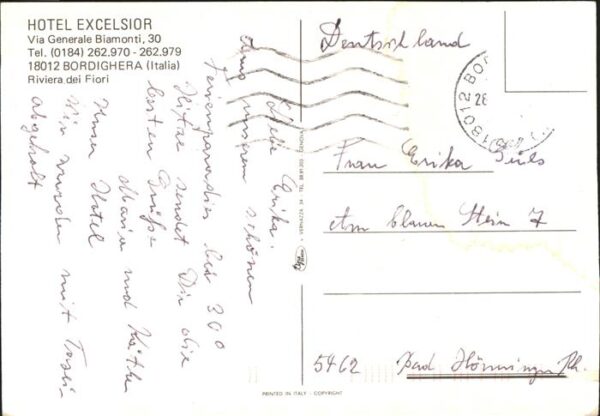 HOTEL EXCELSIOR
Via Generale Biamonti, 30
Tel. (0184) 262.970 - 262.979
18012 BORDIGHERA (Italia)
Riviera dei Fiori
Liebe Erika!
Aus unserem schönen
Ferienparadies bei 30°
Hitze sendet Dir die
besten Grüße
Marien und Käthe
Unser Hotel
Wir wurden mit
abgeholt
Deutschland
18012 BO
28
Frau Erika
Am blauen Stein 7
5462 Bad Hönningen Rh.
PRINTED IN ITALY - COPYRIGHT